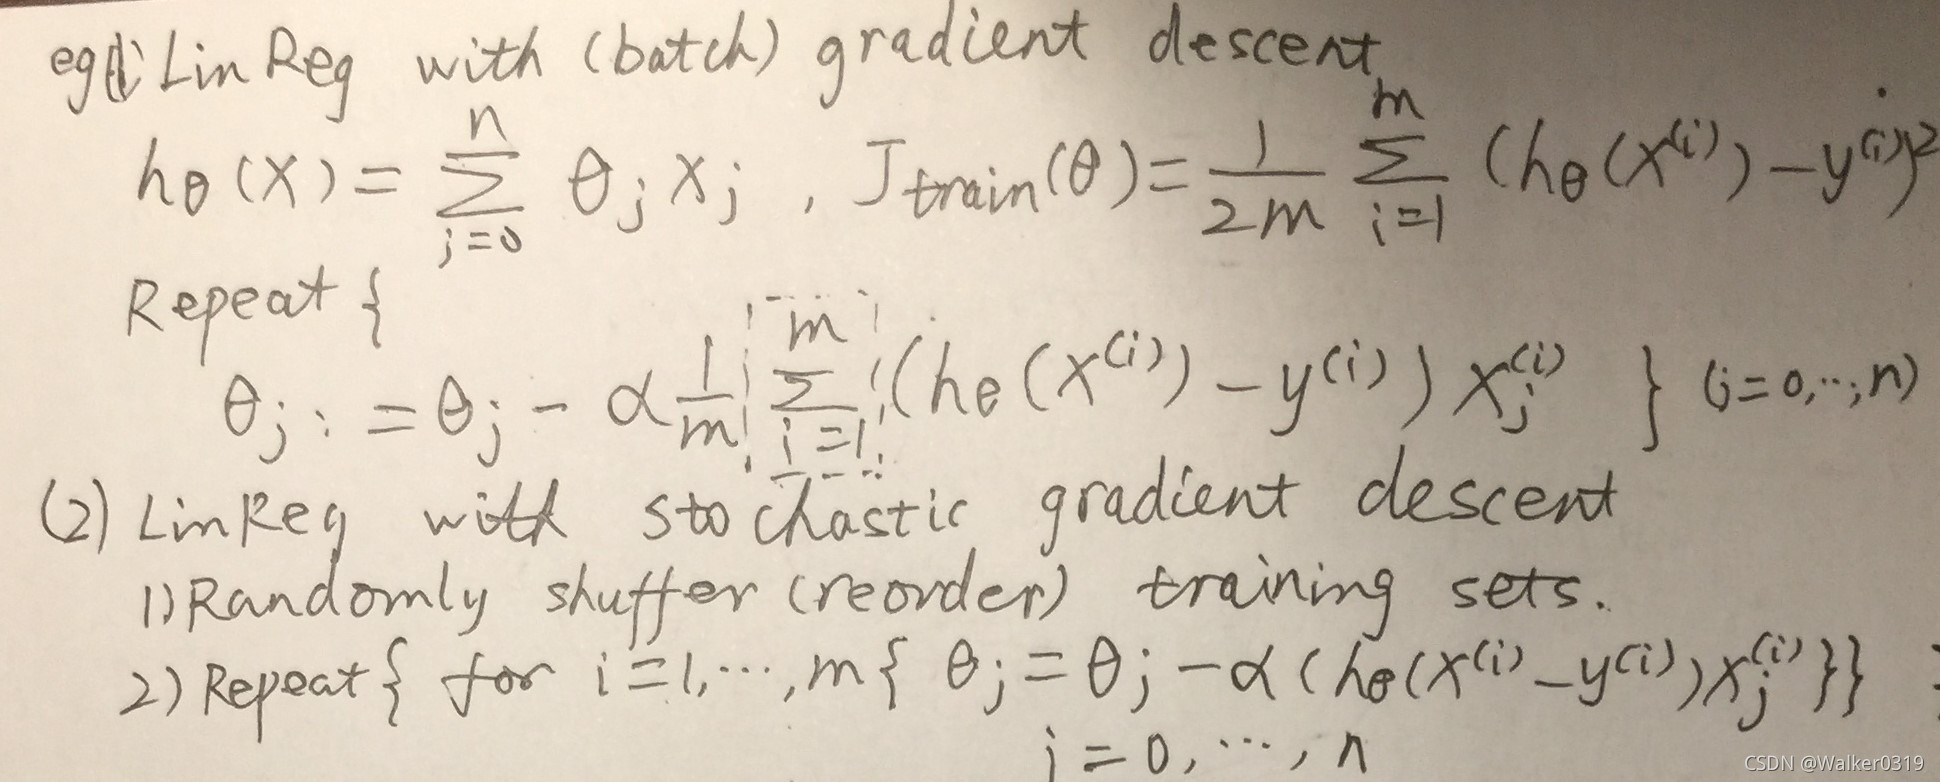 eg(1) LinReg with (batch) gradient descent
hθ(x) = Σ_{j=0}^{n} θj xj , Jtrain(θ) = 1/2m Σ_{i=1}^{m} (hθ(x^(i)) - y^(i))²
Repeat {
θj := θj - α 1/m Σ_{i=1}^{m} (hθ(x^(i)) - y^(i)) xj^(i) } (j=0,...,n)
(2) LinReg with stochastic gradient descent
1) Randomly shuffer (reorder) training sets.
2) Repeat { for i=1,...,m { θj = θj - α (hθ(x^(i) - y^(i)) xj^(i) }}
j = 0, ..., n
CSDN @Walker0319